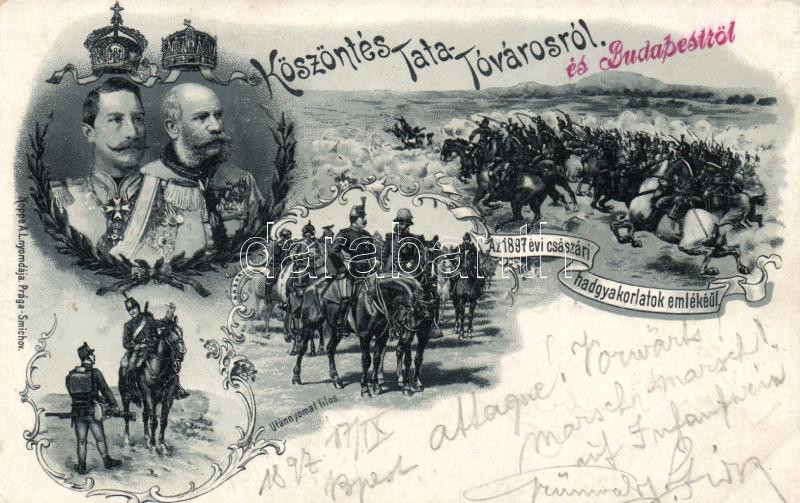 Köszöntés Tata-Tóvárosról.
és Budapestről
Az 1897 évi császári
hadgyakorlatok emlékéül.
Keppe A.L. nyomdája, Prága-Smichov.
Utánnyomat tilos.
darabanth.com
attaque! Vorwärts
marsch, marsch!
auf Infanterie
1897 17/IX
Bpest.